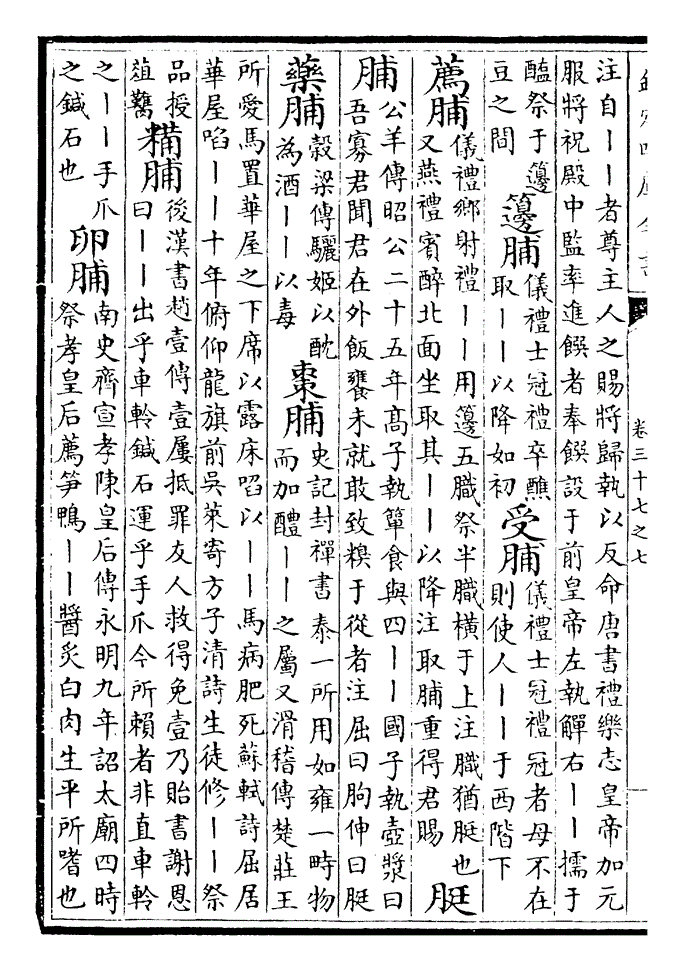 卷三十七之七
注自丨丨者尊主人之賜將歸執以反命唐書禮樂志皇帝加元
服將祝殿中監率進饌者奉饌設于前皇帝左執觶右丨丨擩于
醢祭于籩
豆之間
籩脯
儀禮士冠禮卒醮
取丨丨以降如初
受脯
儀禮士冠禮冠者母不在
則使人丨丨于西階下
薦脯
儀禮鄉射禮丨丨用籩五職祭半職橫于上注職猶脡也
又燕禮賓醉北面坐取其丨丨以降注取脯重得君賜
脡
脯
公羊傳昭公二十五年高子執簞食與四丨丨國子執壺漿曰
吾寡君聞君在外飯饔未就敢致糗于從者注屈曰朐伸曰脡
藥脯
榖梁傳驪姬以酖
為酒丨丨以毒
棗脯
史記封禪書 泰一所用如雍一畤物
而加醴丨丨之屬又滑稽傳楚莊王
所愛馬置華屋之下席以露床啗以丨丨馬病肥死蘇軾詩屈居
華屋啗丨丨十年俯仰龍旗前吳萊寄方子清詩生徒修丨丨祭
品授
葅
糒脯
後漢書趙壹傳壹屢抵罪友人救得免壹乃貽書謝恩
曰丨丨出乎車軨鍼石運乎手爪今所賴者非直車軨
之丨丨手爪
之鍼石也
卵脯
南史齊宣孝陳皇后傳永明九年詔太廟四時
祭孝皇后薦笋鴨丨丨醬炙白肉生平所嗜也